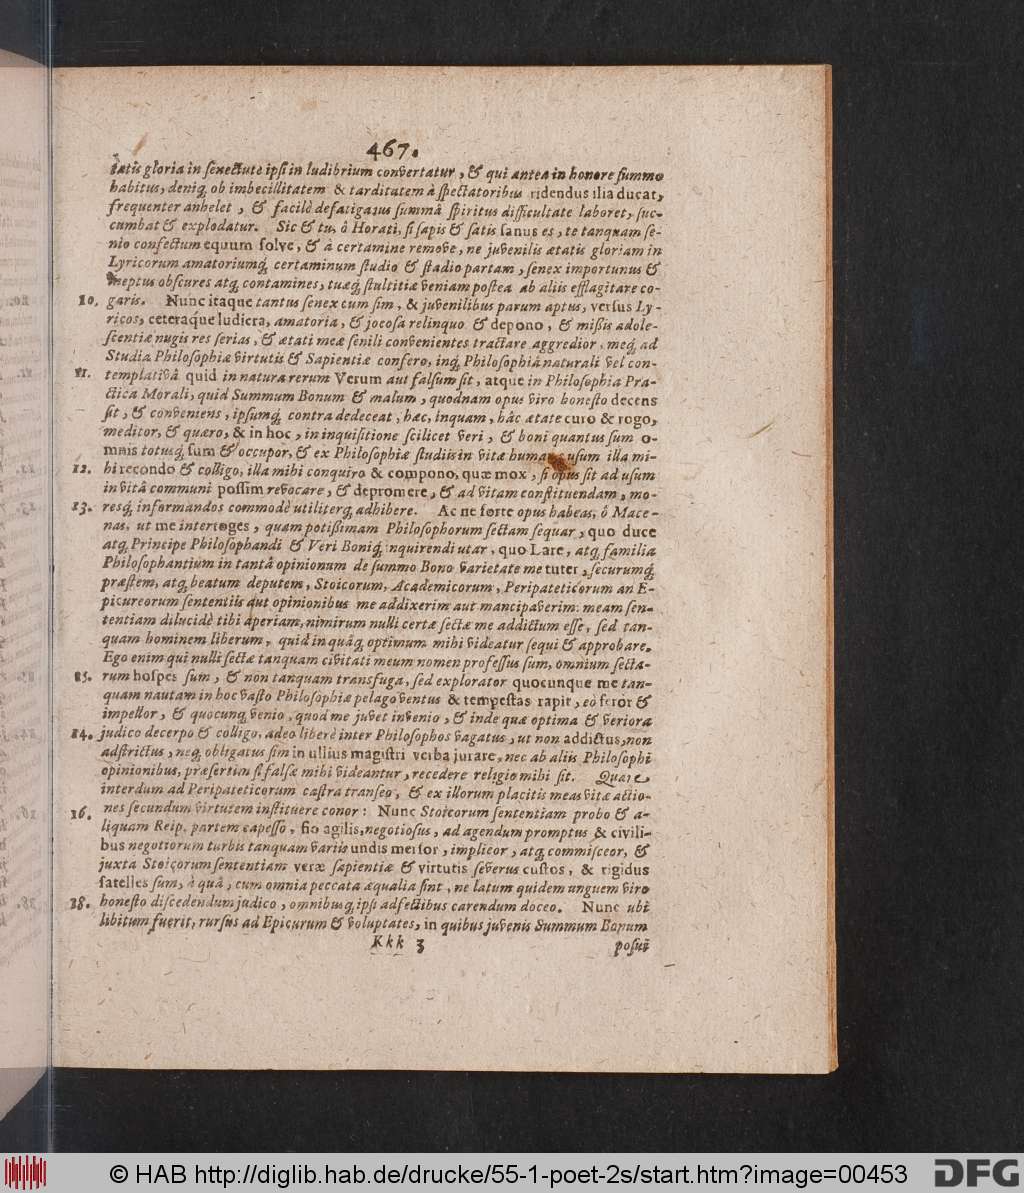 467.
tatis gloria in senectute ipsi in ludibrium convertatur, & qui antea in honore summo
habitus, deniq; ob imbecillitatem & tarditatem à spectatoribus ridendus ilia ducat,
frequenter anhelet, & facilè defatigatus summâ spiritus difficultate laboret, suc-
cumbat & explodatur. Sic & tu, ô Horati, si sapis & satis sanus es, te tanquam se-
nio confectum equum solve, & à certamine remove, ne juvenilis ætatis gloriam in
Lyricorum amatoriumq; certaminum studio & stadio partam, senex importunus &
ineptus obscures atq; contamines, tuæq; stultitiæ veniam postea ab aliis efflagitare co-
10. garis. Nunc itaque tantus senex cum sim, & juvenilibus parum aptus, versus Ly-
ricos, ceteraque ludicra, amatoria, & jocosa relinquo & depono, & mißis adole-
scentiæ nugis res serias, & ætati meæ senili convenientes tractare aggredior, meq; ad
Studia Philosophiæ virtutis & Sapientiæ confero, inq; Philosophiâ naturali vel con-
11. templativâ quid in natura rerum Verum aut falsum sit, atque in Philosophia Pra-
ctica Morali, quid Summum Bonum & malum, quodnam opus viro honesto decens
sit, & conveniens, ipsumq; contra dedeceat, hæc, inquam, hâc ætate curo & rogo,
meditor, & quæro, & in hoc, in inquisitione scilicet veri, & boni quantus sum o-
mnis totusq; sum & occupor, & ex Philosophiæ studiis in vitæ humanæ usum illa mi-
12. hi recondo & colligo, illa mihi conquiro & compono, quæ mox, si opus sit ad usum
in vitâ communi possim revocare, & depromere, & ad vitam constituendam, mo-
13. resq; informandos commodè utiliterq; adhibere. Ac ne forte opus habeas, ô Mæce-
nas, ut me interroges, quam potißimam Philosophorum sectam sequar, quo duce
atq; Principe Philosophandi & Veri Boniq; inquirendi utar, quo Lare, atq; familia
Philosophantium in tantâ opinionum de summo Bono varietate me tuter, securumq;
præstem, atq; beatum deputem, Stoicorum, Academicorum, Peripateticorum an E-
picureorum sententiis aut opinionibus me addixerim aut mancipaverim: meam sen-
tentiam dilucidè tibi aperiam, nimirum nulli certæ sectæ me addictum esse, sed tan-
quam hominem liberum, quid in quâq; optimum mihi videatur sequi & approbare.
Ego enim qui nulli sectæ tanquam civitati meum nomen professus sum, omnium secta-
15. rum hospes sum, & non tanquam transfuga, sed explorator quocunque me tan-
quam nautam in hoc vasto Philosophiæ pelago ventus & tempestas rapit, eò feror &
impellor, & quocunq; venio, quod me juvet invenio, & inde quæ optima & veriora
14. judico decerpo & colligo, adeo liberè inter Philosophos vagatus, ut non addictus, non
adstrictus, neq; obligatus sim in ullius magistri verba jurare, nec ab aliis Philosophi
opinionibus, præsertim si falsæ mihi videantur, recedere religio mihi sit. Quare
interdum ad Peripateticorum castra transeo, & ex illorum placitis meas vitæ actio-
16. nes secundum virtutem instituere conor: Nunc Stoicorum sententiam probo & a-
liquam Reip. partem capesso, fio agilis, negotiosus, ad agendum promptus & civili-
bus negotiorum turbis tanquam variis undis mersor, implicor, atq; commisceor, &
juxta Stoicorum sententiam veræ sapientiæ & virtutis severus custos, & rigidus
satelles sum, à quâ, cum omnia peccata æqualia sint, ne latum quidem unguem viro
18. honesto discedendum judico, omnibusq; ipsi adfectibus carendum doceo. Nunc ubi
libitum fuerit, rursus ad Epicurum & voluptates, in quibus juvenis Summum Bonum
Kkk 3 posui
© HAB http://diglib.hab.de/drucke/55-1-poet-2s/start.htm?image=00453
DFG